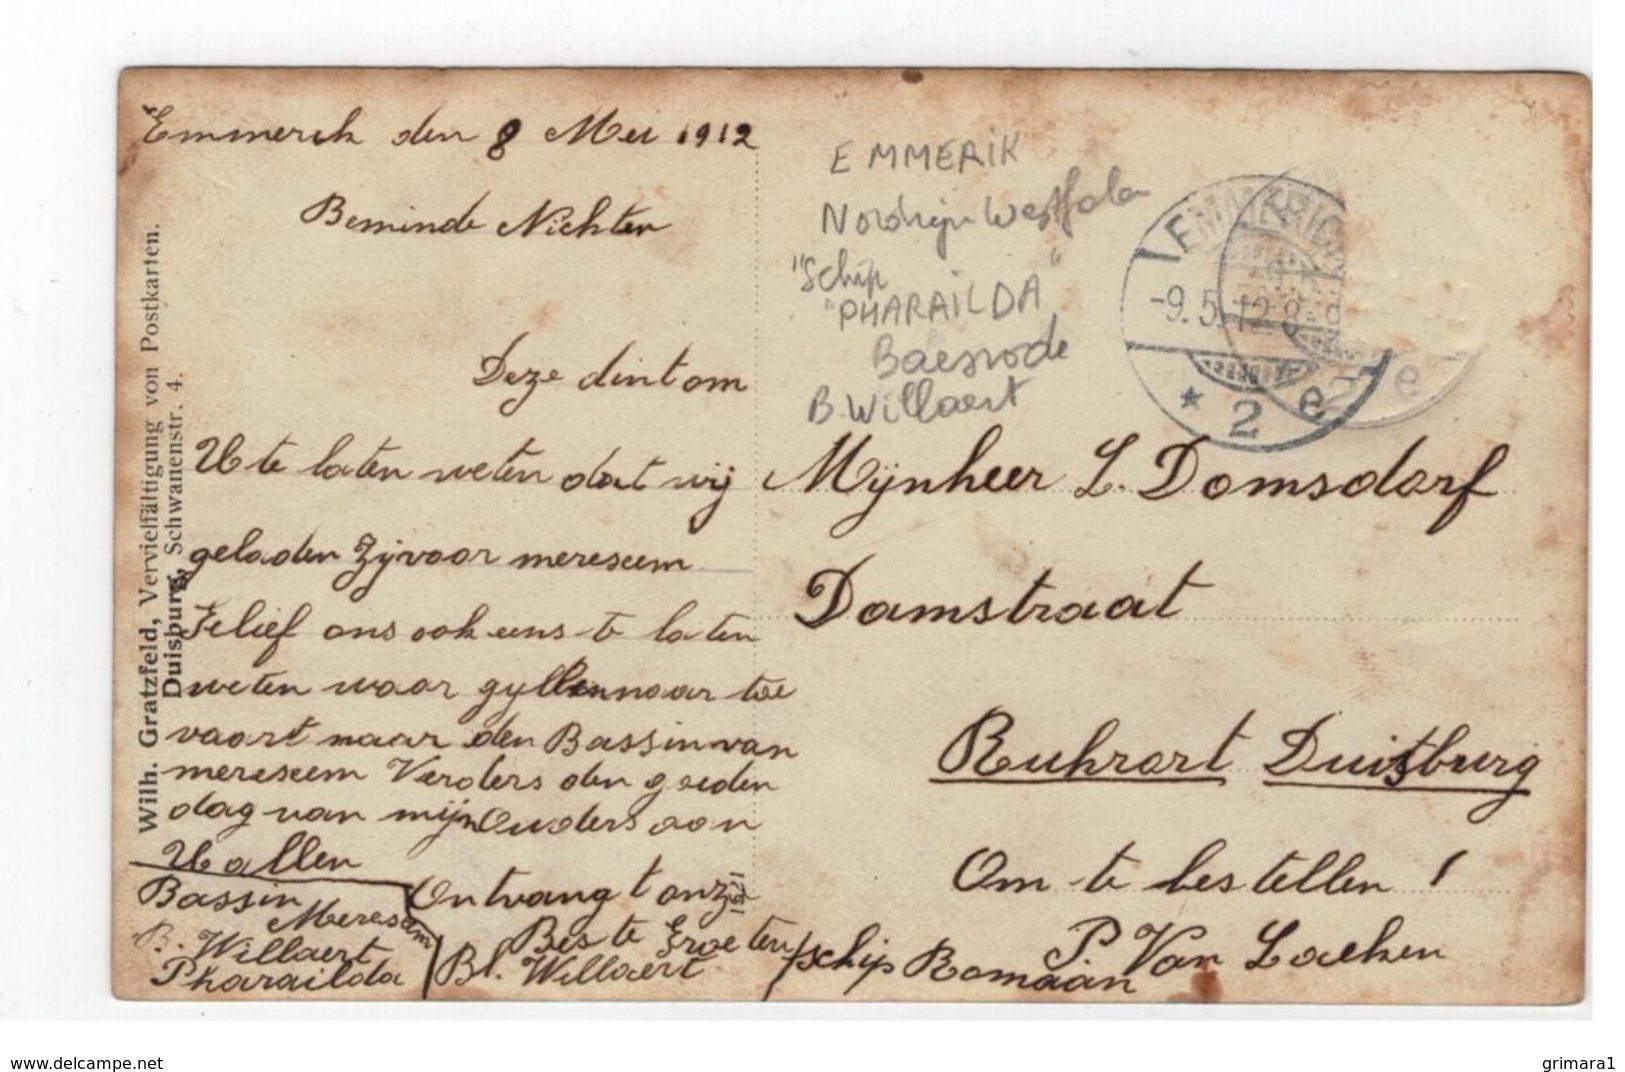 Emmerik den 8 Mei 1912
Beminde Nichten
Deze dint om
U te laten weten dat wij
geladen Zijvoor mereseem
Gelief ons ook eens te laten
weten waar gyllen naar toe
vaart naar den Bassin van
mereseem Verders den goeden
dag van mijn Ouders aan
U allen
Bassin
Meresem
B. Willaert
Pharailda
Ontvangt onze
Beste Groeten
Bl. Willaert
Wilh. Gratzfeld, Vervielfältigung von Postkarten.
Duisburg, Schwanenstr. 4.
EMMERIK
Nordrijn Westfalen
"Schip
"PHARAILDA"
Baesrode
B. Willaert
EMMERICH
-9.5.12.8-9
* 2 e
Mijnheer L. Domsdorf
Damstraat
Ruhrort Duitsburg
Om te bestellen !
P Van Laeken
schip Romaan
delcampe.net
grimara1